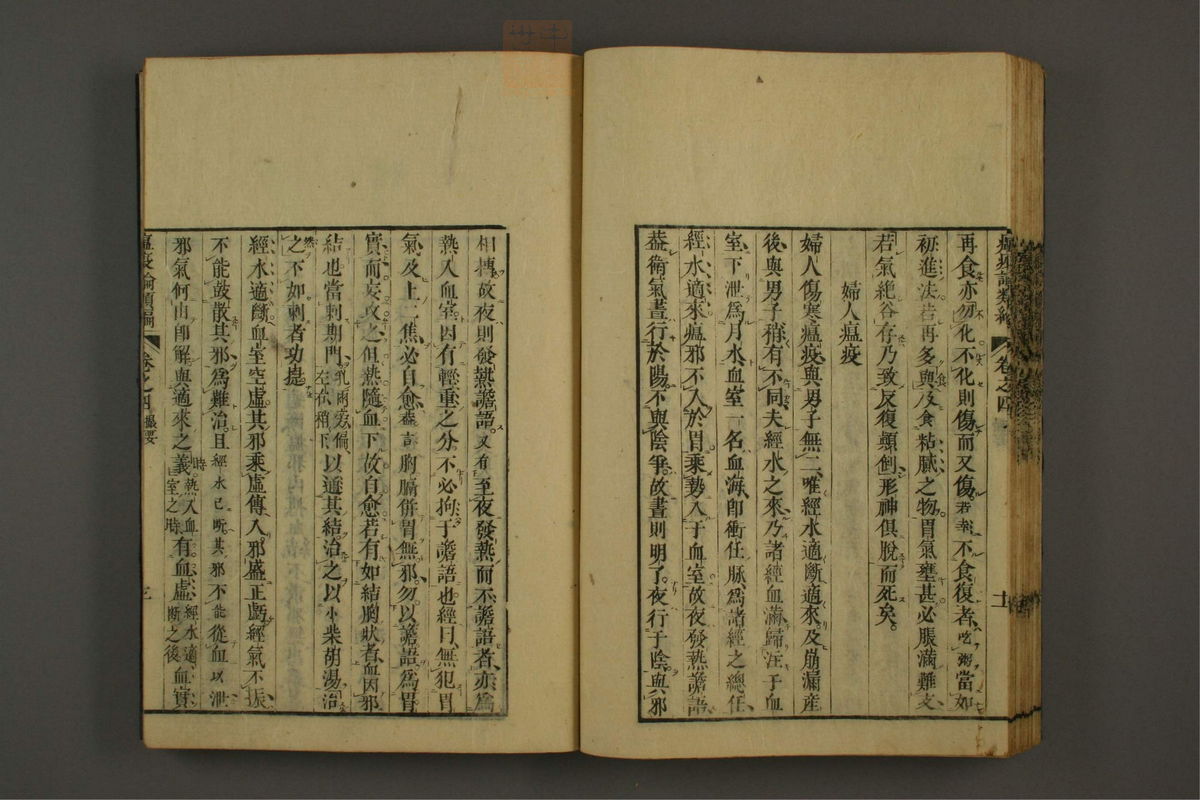 瘟疫論類編
卷之四
十一
再食亦勿化不化則傷而又傷若執不食復者吃粥當如
初進法若再多與及食粘膩之物胃氣壅甚必脹滿難支
若氣絕谷存乃致反復顛倒形神俱脫而死矣
婦人瘟疫
婦人傷寒瘟疫與男子無二唯經水適斷適來及崩漏產
後與男子稍有不同夫經水之來乃諸經血滿歸注于血
室下泄爲月水血室一名血海卽衝任脉爲諸經之總任
經水適來瘟邪不入於胃乘勢入于血室故夜發熱譫語
葢衛氣晝行於陽不與陰爭故晝則明了夜行于陰與邪
相搏故夜則發熱譫語又有至夜發熱而不譫語者亦爲
熱入血室因有輕重之分不必拘于譫語也經曰無犯胃
氣及上二焦必自愈葢言胸膈併胃無邪勿以譫語爲胃
實而妄攻之但熱隨血下故自愈若有如結胸狀者血因邪
結也當刺期門乳兩旁偏左右稍下以通其結治之以小柴胡湯治
之然不如刺者功捷
經水適斷血室空虛其邪乘虛傳入邪盛正虧經氣不振
不能鼓散其邪爲難治且經水已斷其邪不能從血以泄
邪氣何由卽解與適來之義時熱入血室之時有血虛經水適斷之後血實
瘟疫論類編
卷之四
撮要